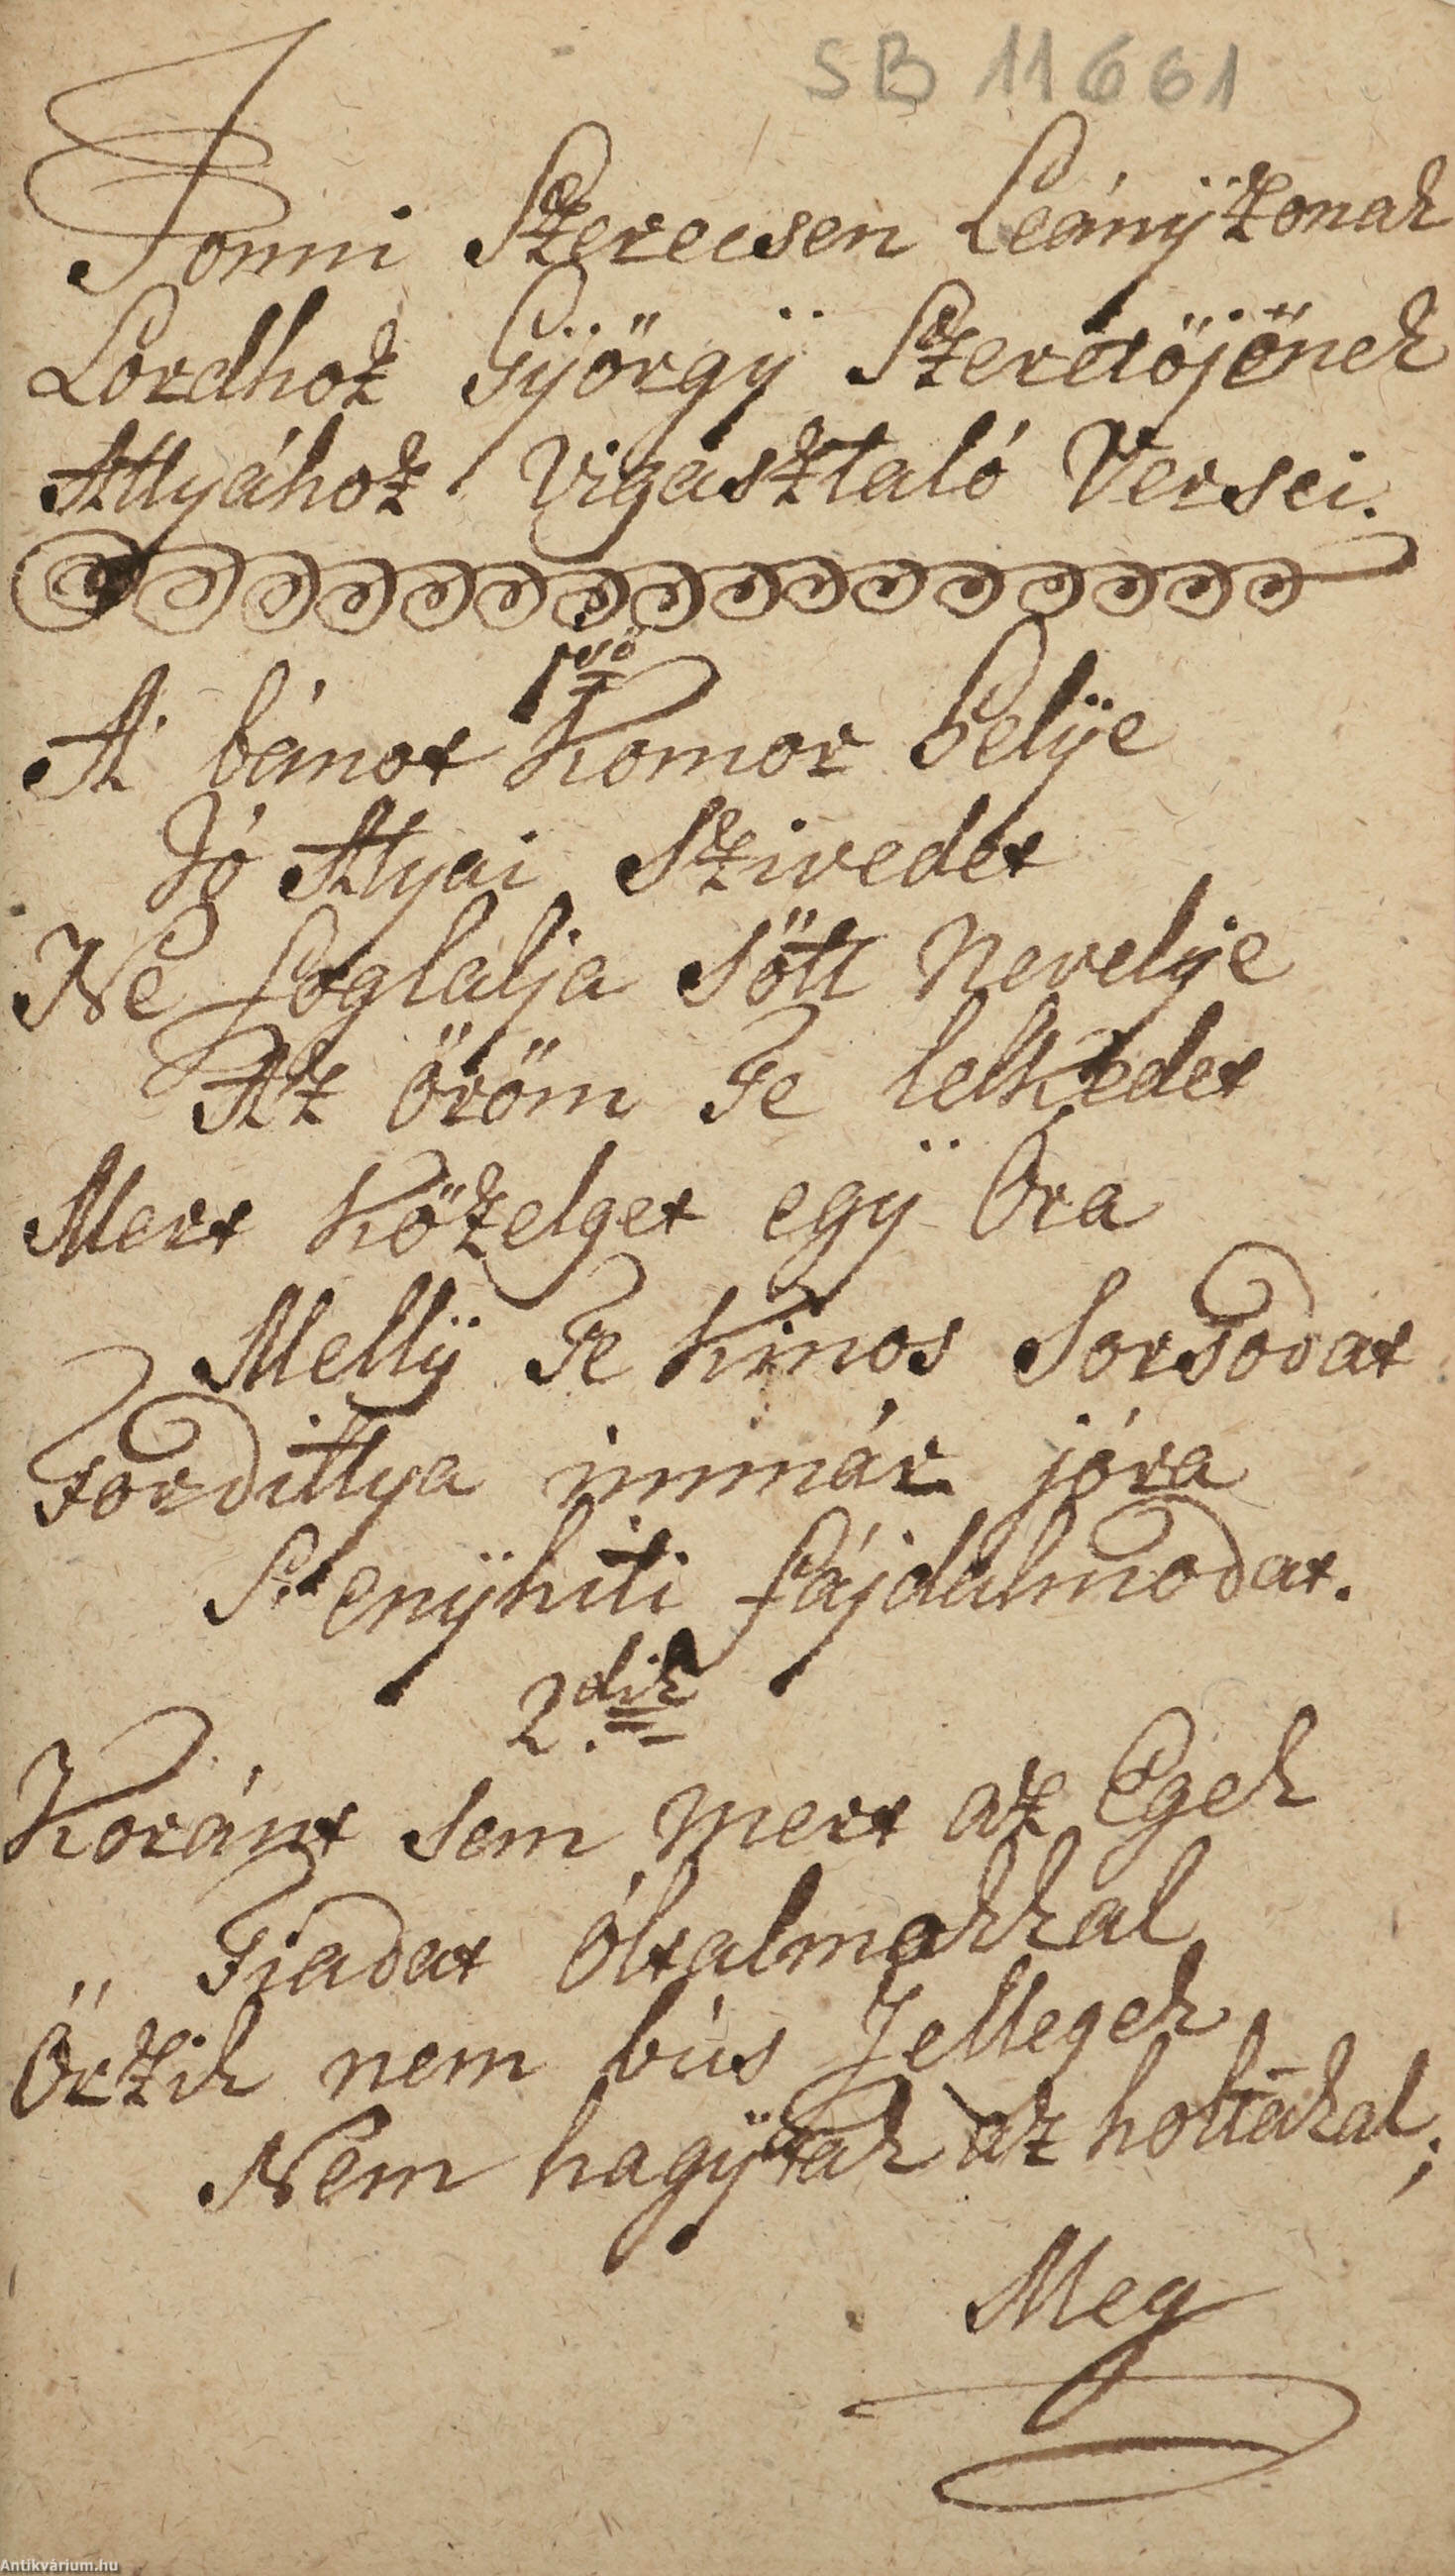 SB 11661
Tonni Szerecsen Leánÿzonak
Lordhoz Gÿörgÿ Szeretöjének
Attyához Vigasztaló Versei.
1ső
A' bánat Komor helÿe
Jó Atyai Szivedet
Ne foglalja sött nevelÿe
Az öröm Te lelkedet
Mert Közelget egÿ Óra
Mellÿ Te Kinos Sorsodat
Fordittya immár jóra
S' enÿhiti fájdalmodat.
2.dik
Koránt sem mert az Egek
Fiadat óltalmokkal
Örzik nem bús Jellegek
Nem hagÿták az holtakal;
Meg
Antikvárium.hu